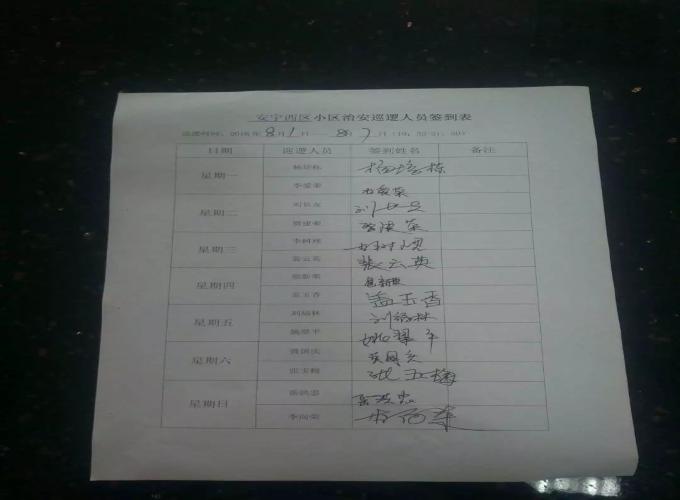 安宁西区小区治安巡逻人员签到表
巡逻时间：2016年8月1日——8月7日
日期 巡逻人员 签到姓名 备注
星期一 杨培栋 杨培栋
李爱荣 李爱荣
星期二 刘长友 刘长友
贾建荣
星期三 李树理
裴云英 裴云英
星期四
孟玉香 孟玉香
星期五 刘福林 刘福林
姚翠平 姚翠平
星期六
张玉梅 张玉梅
星期日 岳洪忠 岳洪忠
李向荣 李向荣